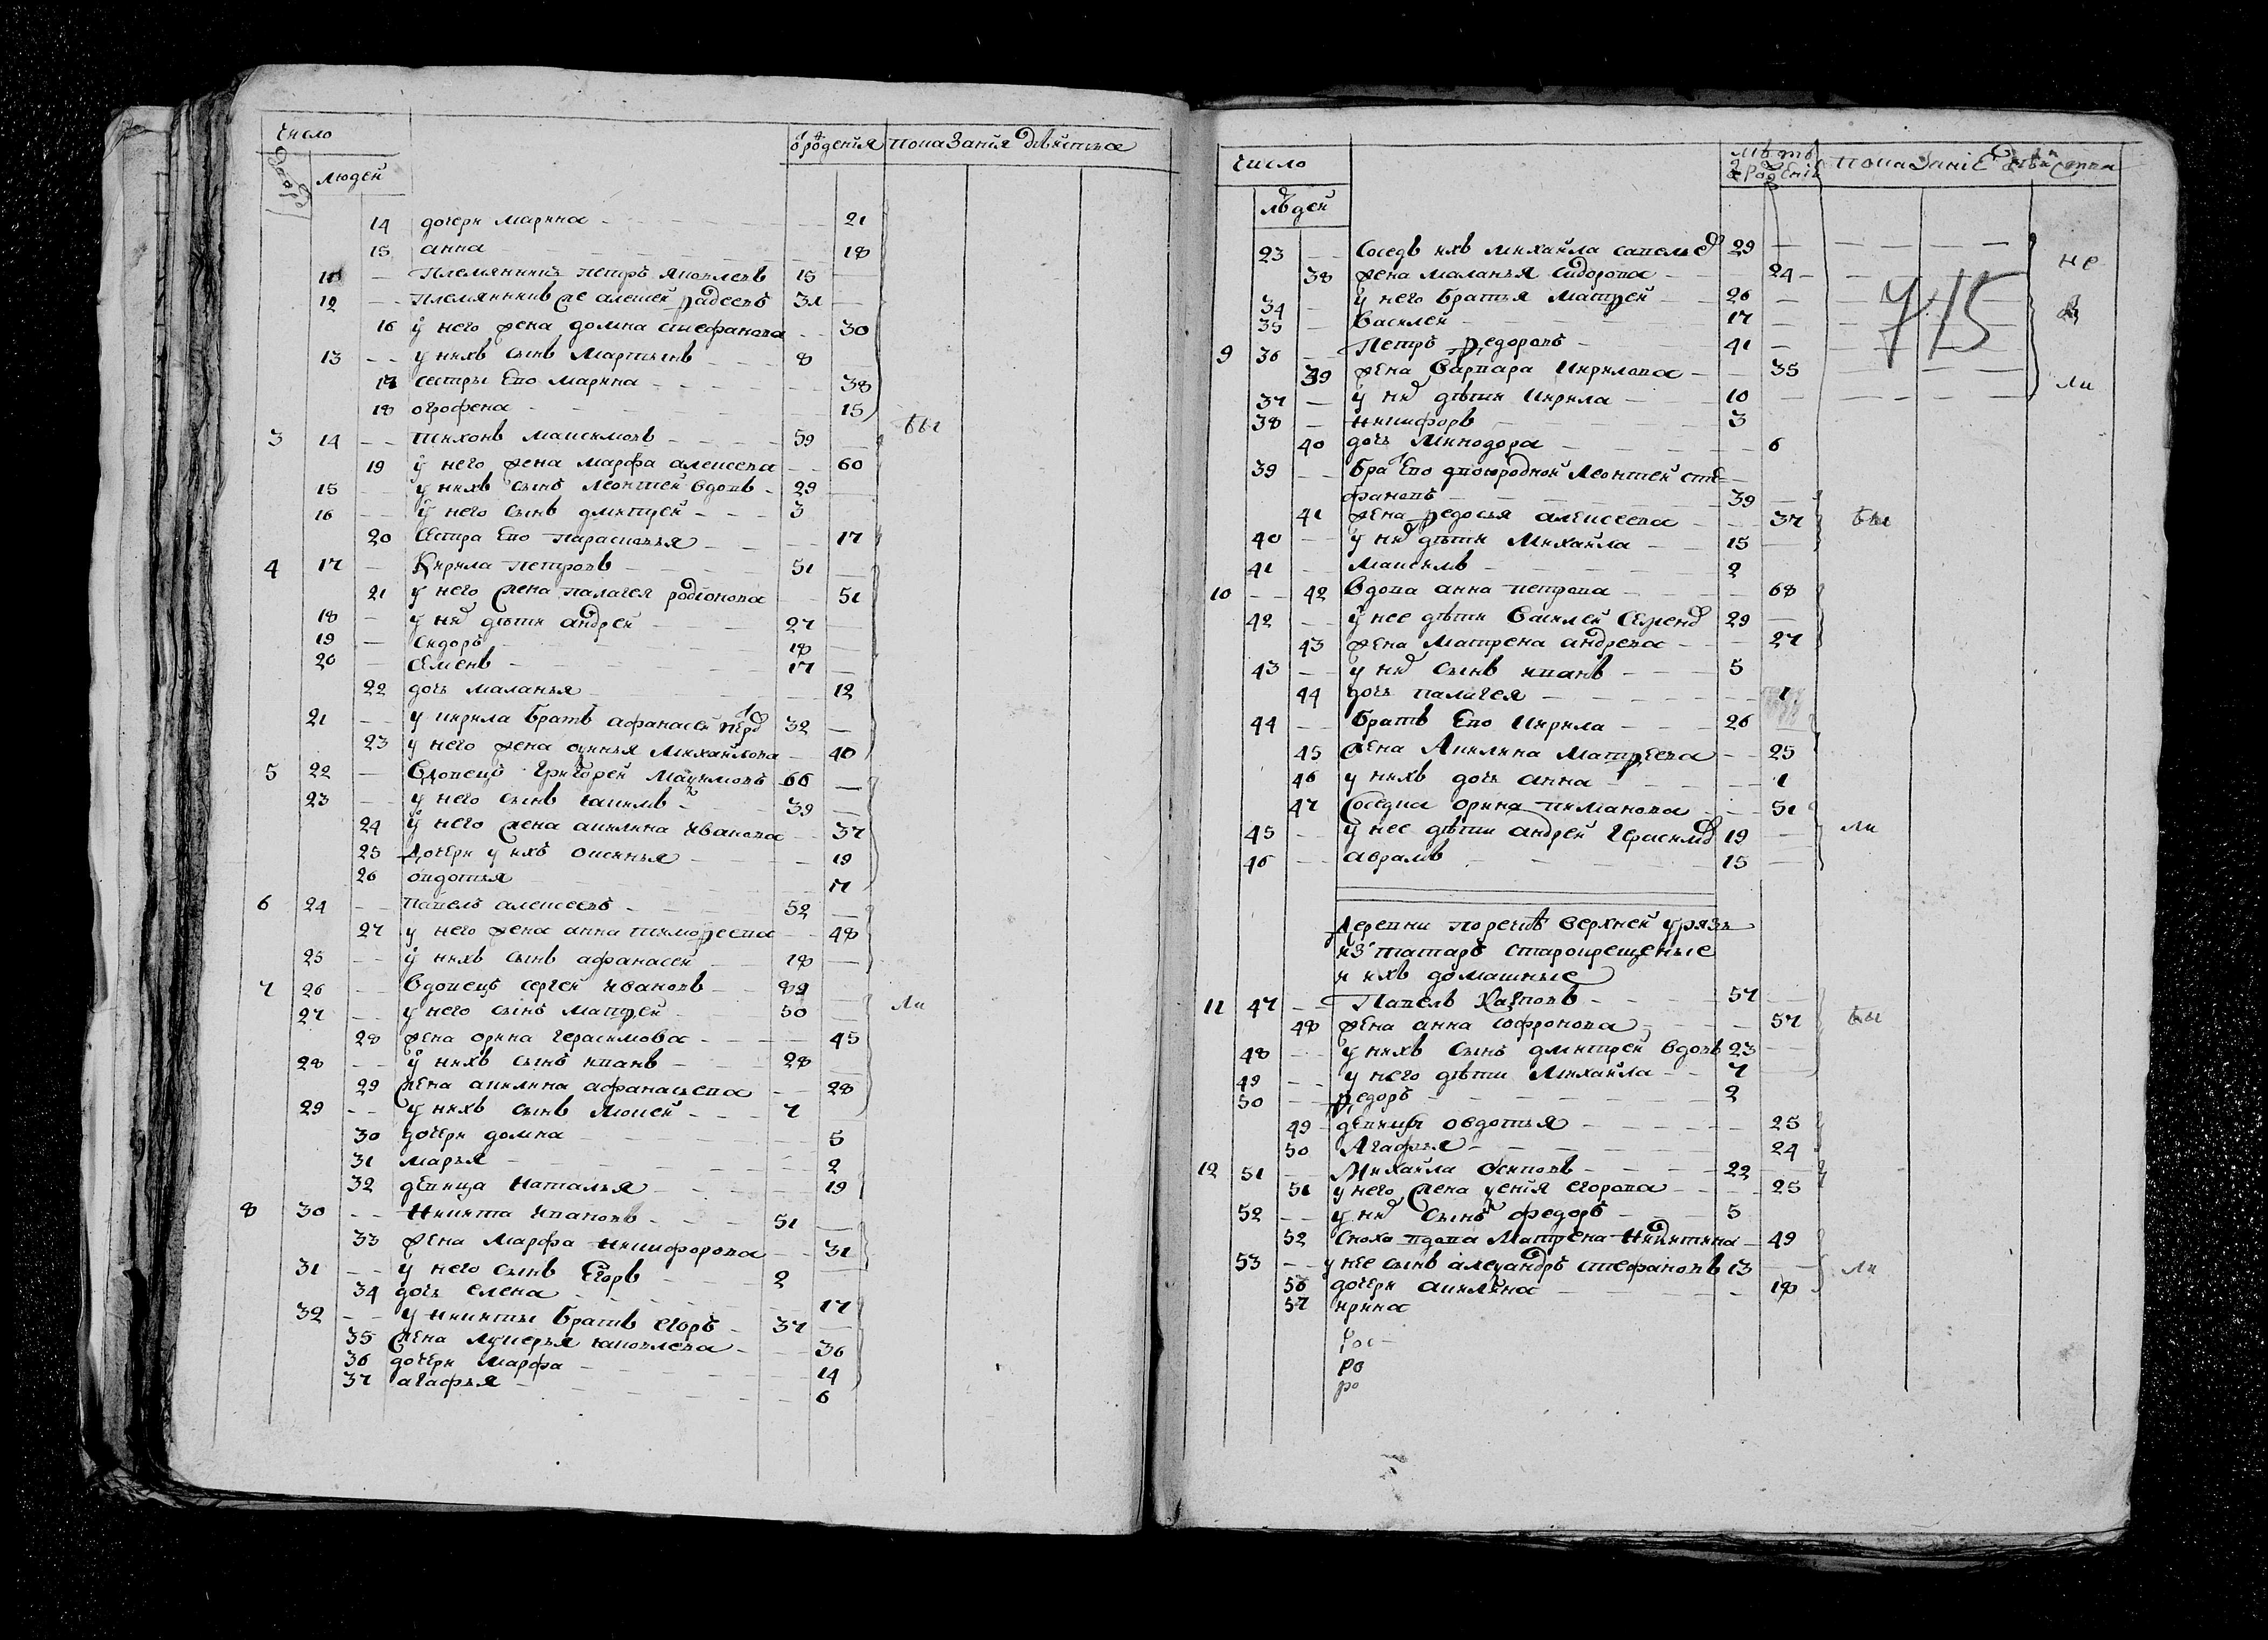 число
дворо
людей
от рожденія
показанія действа
14 дочери марина 21
15 анна 18
11 племянникъ петръ яковлевъ 15
12 племянникъ же алексей фадеевъ 31
16 у него жена домна стефанова 30
13 у нихъ сынъ мартынъ 8
17 сестры ево марина 38
18 огрофена 15
бы
3 14 тихонъ максимовъ 59
19 у него жена марфа алексеева 60
15 у нихъ сынъ леонтей вдовъ 29
16 у него сынъ дмитрей 3
20 сестра ево парасковья 17
4 17 кирила петровъ 51
21 у него жена палагея родіонова 51
18 у них дети андрей 27
19 сидоръ 18
20 семенъ 17
22 дочь маланья 12
21 у кирила братъ афанасей 32
23 у него жена михайлова 40
5 22 вдовецъ григорей максимовъ 60
23 у него сынъ иакимъ 39
24 у него жена акилина иванова 37
25 дочери у нихъ оксинья 19
26 овдотья 17
6 24 павелъ алексеевъ 52
27 у него жена анна тимофеева 48
25 у нихъ сынъ афанасей 18
7 26 вдовецъ сергей ивановъ 89
27 у него сынъ матфей 50
ли
28 жена орина герасимова 45
28 у нихъ сынъ иванъ 28
29 жена акилина афанасьева 28
29 у нихъ сынъ мокей 7
30 дочери домна 5
31 марья 2
32 девица наталья 19
8 30 никита ивановъ 51
33 жена марфа никифорова 31
31 у него сынъ егоръ 2
34 дочь елена 17
32 у никиты братъ егоръ 37
35 жена лукерья иаковлева 36
36 дочери марфа 14
37 агафья 6
число
людей
летъ от рожденія
показаніе действа
23 соседъ ихъ михайла савельев 29
не
38 жена маланья сидорова 24
715
34 у него братья матфей 26
35 василей 17
9 36 петръ федоровъ 41
39 жена варвара кирилова 35
ли
37 у них дети кирила 10
38 никифоръ 3
40 дочь минодора 6
39 братъ ево двоюродной леонтей сте-
фановъ 39
41 жена федосья алексеева 37
бы
40 у них дети михайла 15
41 максимъ 2
10 42 вдова анна петрова 68
42 у нее дети василей семенов 29
43 жена матрена андреева 27
43 у них сынъ иванъ 5
44 дочь палагея 1
44 братъ ево кирила 26
45 жена акилина матфеева 25
46 у нихъ дочь анна 1
47 соседка орина 51
45 у нее дети андрей герасимов 19
ли
46 аврамъ 15
деревни поречъе верхней урязъ
изъ татаръ старокрещеные
и ихъ домашные
11 47 павелъ карповъ 57
48 жена анна софронова 57
бы
48 у нихъ сынъ дмитрей вдовъ 23
49 у него дети михайла 7
50 федоръ 2
49 девицы овдотья 25
50 агафья 24
12 51 михайла осиповъ 22
51 у него жена ксенія егорова 25
52 у них сынъ федоръ 5
52 сноха вдова матрена никитина 49
53 у нее сынъ алеѯандръ стефановъ 13
ли
56 дочери акилина 18
57 ирина
ро
ро